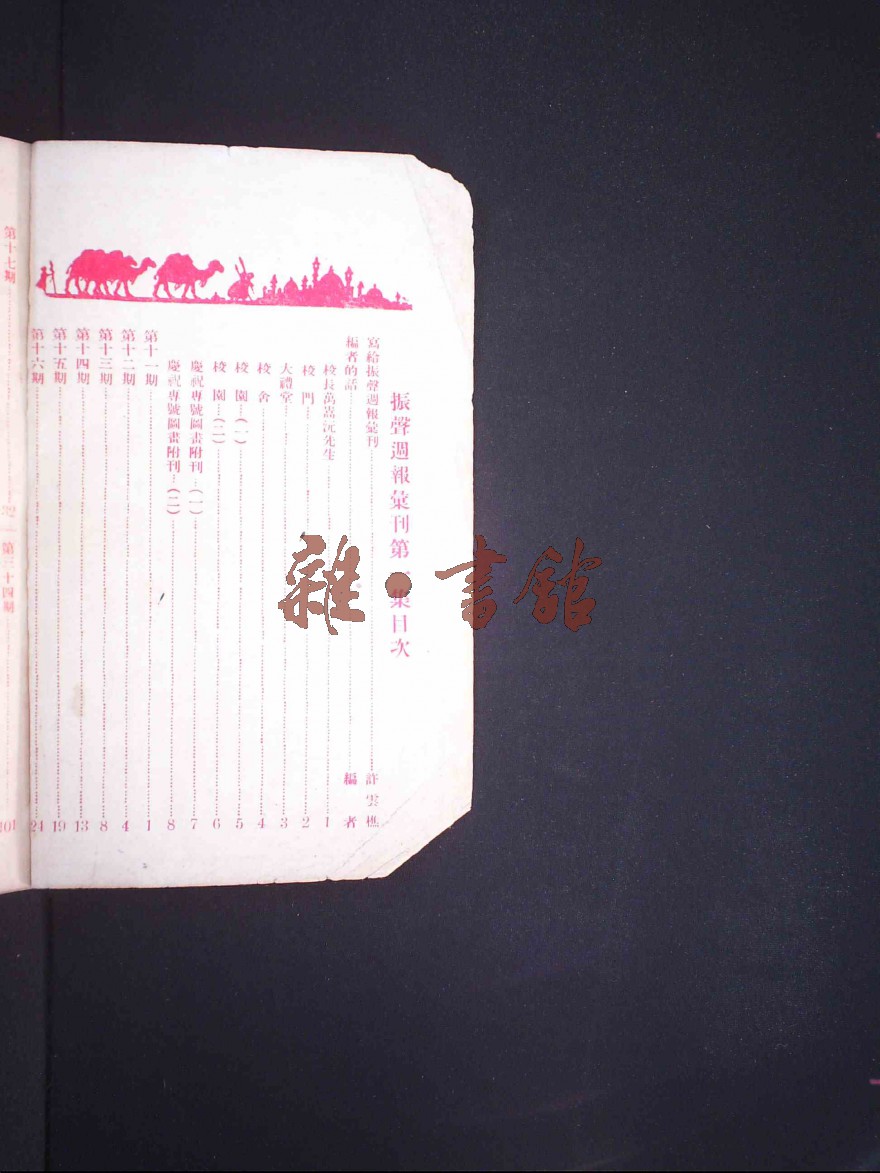 振聲週報彙刊第一集目次
寫給振聲週報彙刊……許雲樵
編者的話……編者
校長萬嵩沅先生……1
校門……2
大禮堂……3
校舍……4
校園…(一)……5
校園…(二)……6
慶祝專號圖畫附刊…(一)……7
慶祝專號圖畫附刊…(二)……8
第十一期……1
第十二期……4
第十三期……8
第十四期……13
第十五期……19
第十六期……24
第十七期……32
第三十四期……101
雜·書館